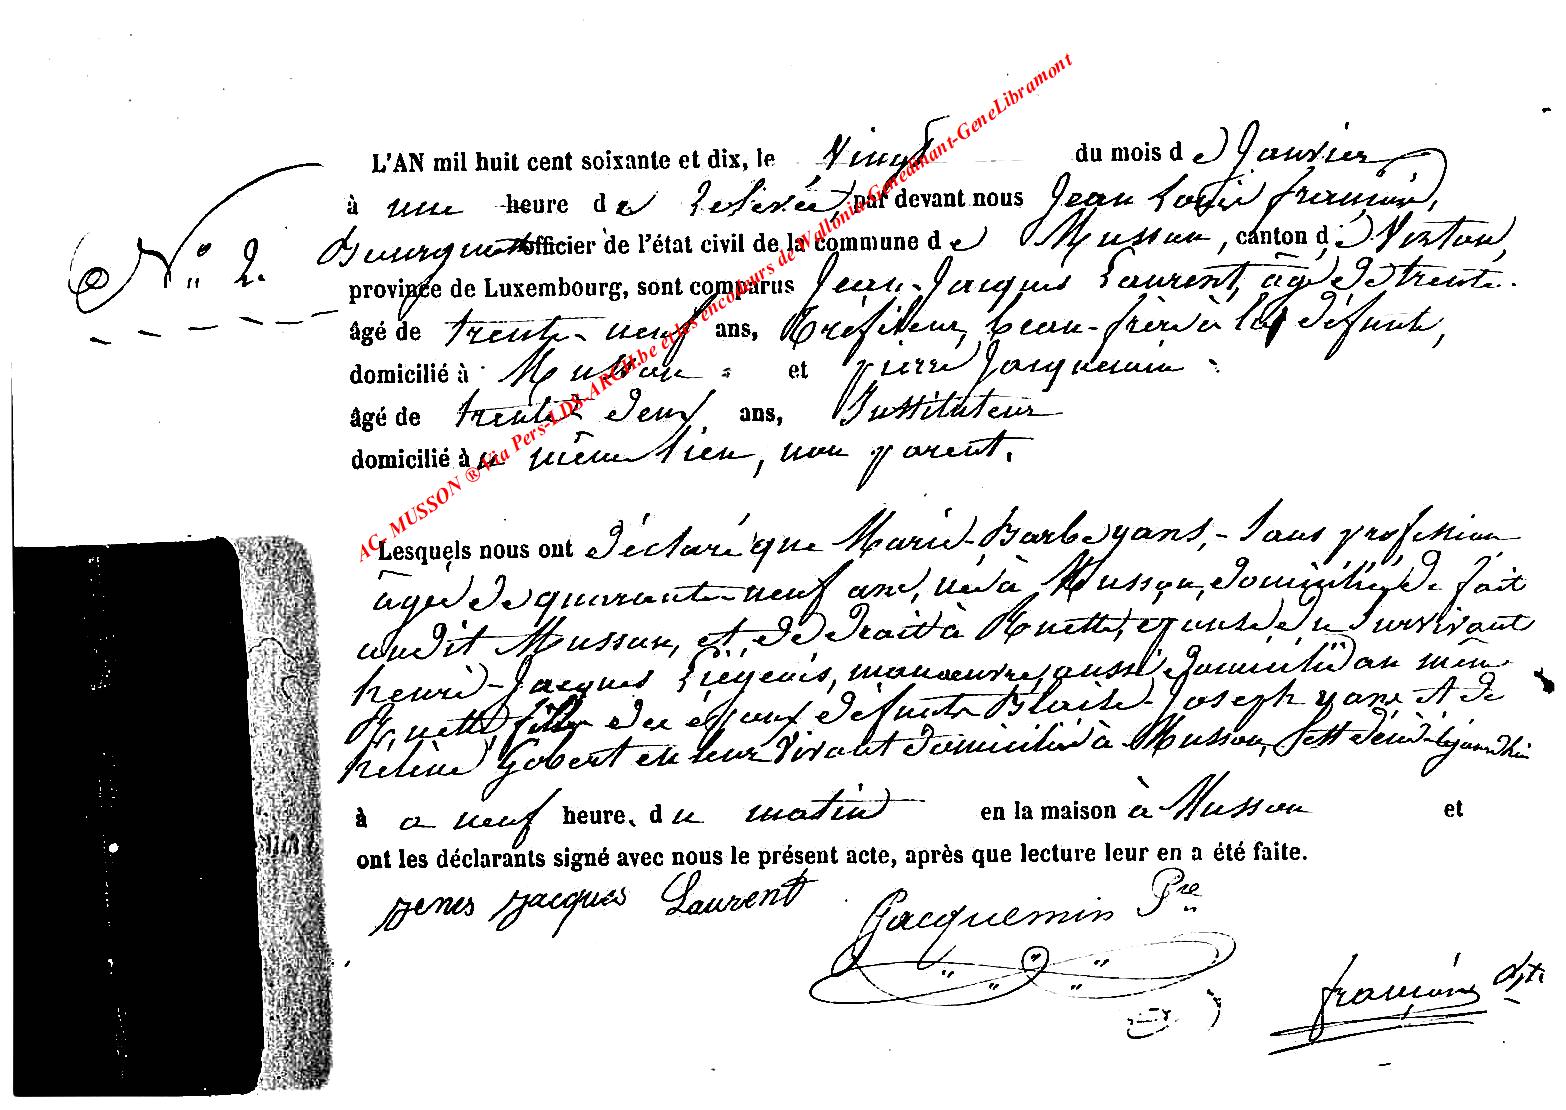 L'AN mil huit cent soixante et dix, le vingt du mois de Janvier
à une heure de relevée, par devant nous Jean Louis françois,
Bourgmestre officier de l'état civil de la commune de Musson, canton de Virton,
N° 2.
province de Luxembourg, sont comparus Jean-Jacques Laurent, âgé de trente
âgé de trente-neuf ans, Tréfileur, beau-frère à la défunte,
domicilié à Musson et pierre Jacquemin
âgé de trente deux ans, Instituteur
domicilié au même lieu, non parent.
Lesquels nous ont déclaré que Marie-Barbe yans, sans profession
âgée de quarante-neuf ans, née à Musson, domiciliée de fait
audit Musson, et de droit à Ruette, epouse du Survivant
henri-Jacques Liégeois, manoeuvre, aussi domicilié au même
Ruette, fille des époux défunts Blaise-Joseph yans et de
helène Gobert en leur vivant domiciliés à Musson, est décédée aujourd'hui
à a neuf heure. du matin en la maison à Musson et
ont les déclarants signé avec nous le présent acte, après que lecture leur en a été faite.
Jacques Laurent
Jacquemin Pre
françois
AC- MUSSON ® Via Pers-LDS-ARCH.be et les encodeurs de Wallonia-Genedinant-GeneLibramont